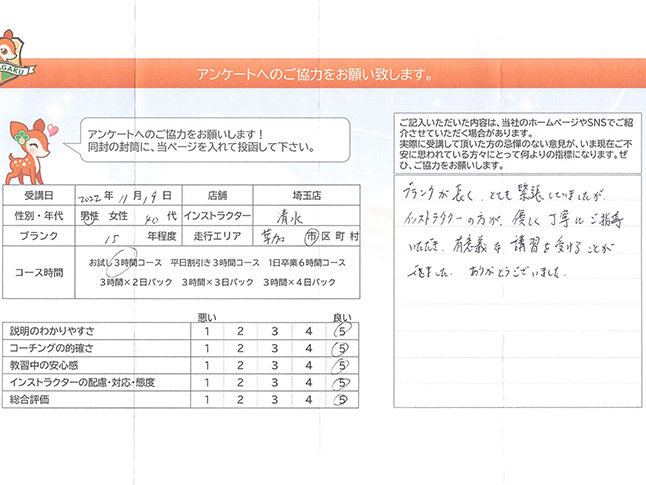 GAKU
アンケートへのご協力をお願い致します。
アンケートへのご協力をお願いします！
同封の封筒に、当ページを入れて投函して下さい。
受講日 2022年 11月 19日 店舗 埼玉店
性別・年代 男性 女性 40代 インストラクター 清水
ブランク 15 年程度 走行エリア 草加 市区町村
コース時間
お試し3時間コース 平日割引き3時間コース 1日卒業6時間コース
3時間×2日パック 3時間×3日パック 3時間×4日パック
悪い 良い
説明のわかりやすさ 1 2 3 4 5
コーチングの的確さ 1 2 3 4 5
教習中の安心感 1 2 3 4 5
インストラクターの配慮・対応・態度 1 2 3 4 5
総合評価 1 2 3 4 5
ご記入いただいた内容は、当社のホームページやSNSでご紹
介させていただく場合があります。
実際に受講して頂いた方の忌憚のない意見が、いま現在ご不
安に思われている方々にとって何よりの指標になります。ぜ
ひ、ご協力をお願いします。
ブランクが長く、とても緊張していましたが、
インストラクターの方が、優しく丁寧にご指導
いただき、有意義な講習を受けることが
できました。ありがとうございました。